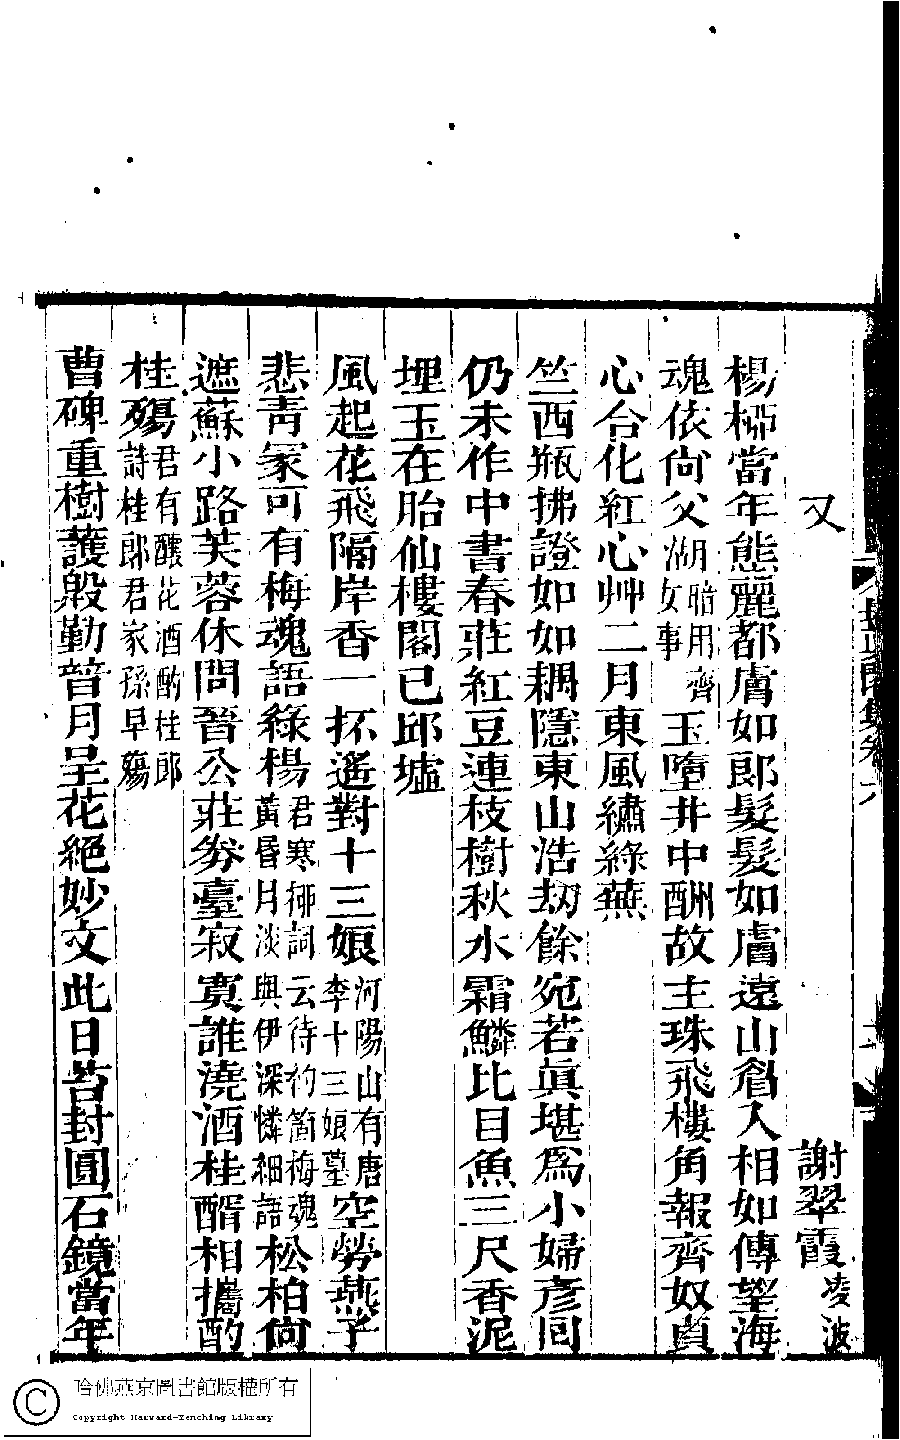 又 謝翠霞凌波
楊柳當年態麗都膚如郎髮髮如膚遠山翕入相如傳望海
魂依尙父湖用暗用齊女事玉墮井中酬故主珠飛樓角報齊奴貞
心合化紅心艸二月東風繡綠蕪
竺西瓶拂證如如耦隱東山浩劫餘宛若眞堪爲小婦彥回
仍未作中書春莊紅豆連枝樹秋水霜鱗比目魚三尺香泥
埋玉在胎仙樓閣已邱墟
風起花飛隔岸香一抔遙對十三娘河陽山有唐李十三娘墓空勞燕子
悲靑冢可有梅魂語綠楊君寒柳詞云待約箇梅魂黃昏月淡與伊深憐細語松柏尙
遮蘇小路芙蓉休問晉公莊劵臺寂寞誰澆酒桂醑相攜酌
桂殤君有釀花酒酌桂郎詩桂郎君家孫早殤
曹碑重樹護殷勤暜月呈花絕妙文此日苔封圓石鏡當年
哈佛燕京圖書館版權所有
Copyright Harvard-Yenching Library